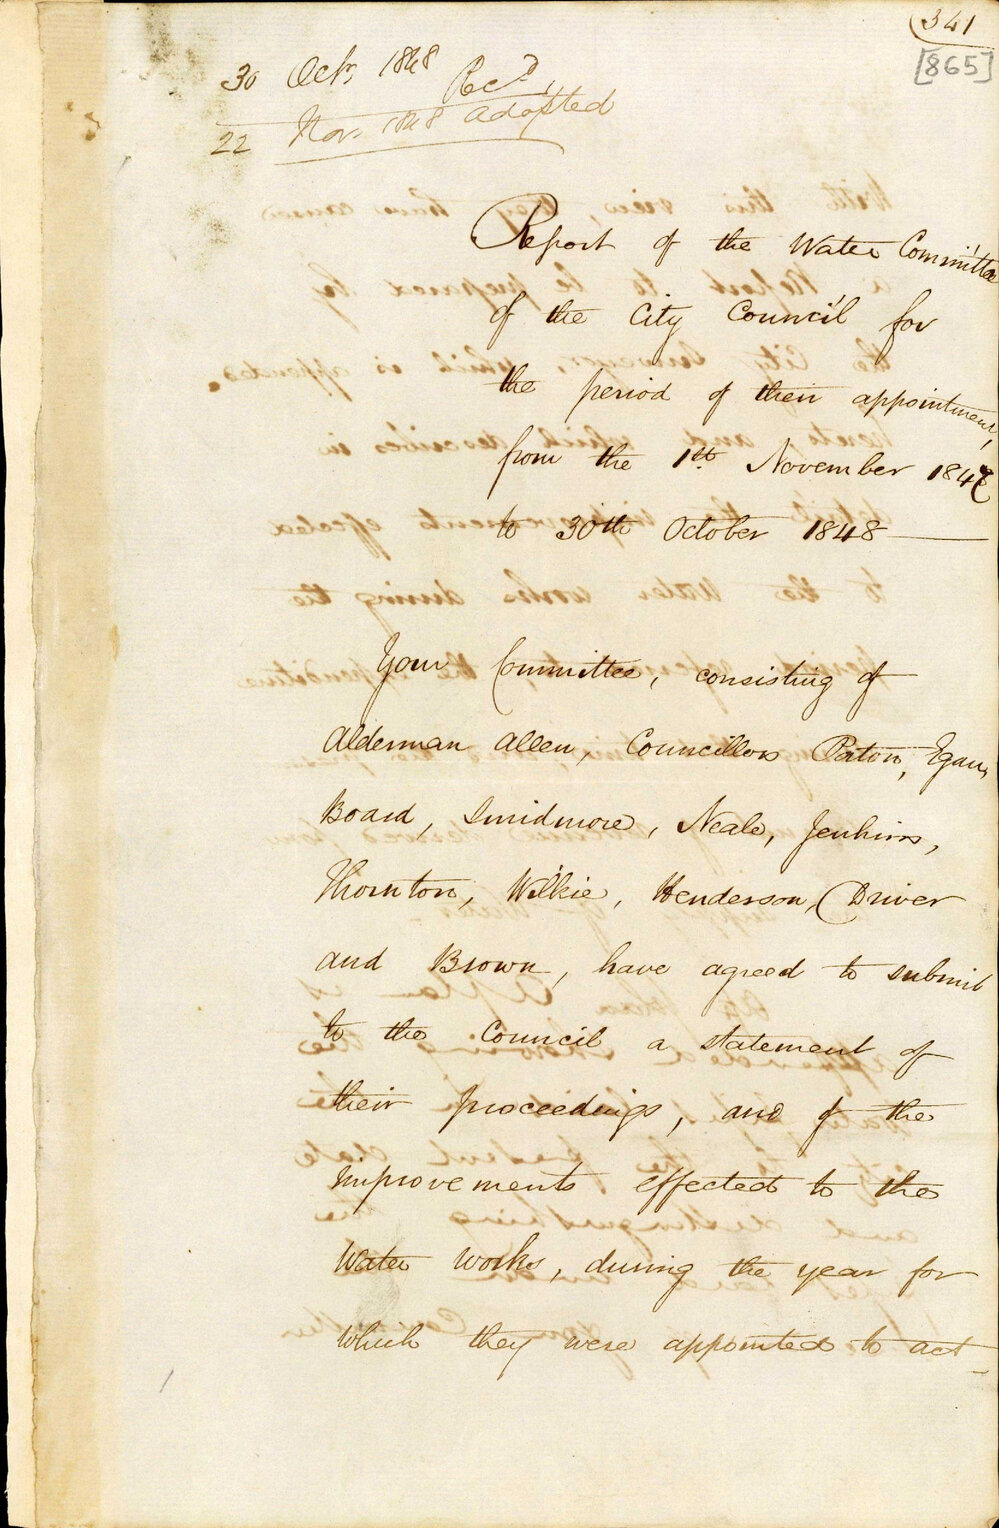 (341
[865]
30 Octr 1848 Recd.
22 Nov. 1848 adopted
Report of the Water Committee
of the City Council for
the period of their appointment,
from the 1st November 1847
to 30th October 1848
Your Committee, consisting of
Alderman Allen, Councillors Paton, Egan,
Board, Smidmore, Neale, Jenkins,
Thornton, Wilkie, Henderson, Driver
and Brown, have agreed to submit
to the Council a statement of
their proceedings, and of the
improvements effected to the
Water Works, during the year for
which they were appointed to act